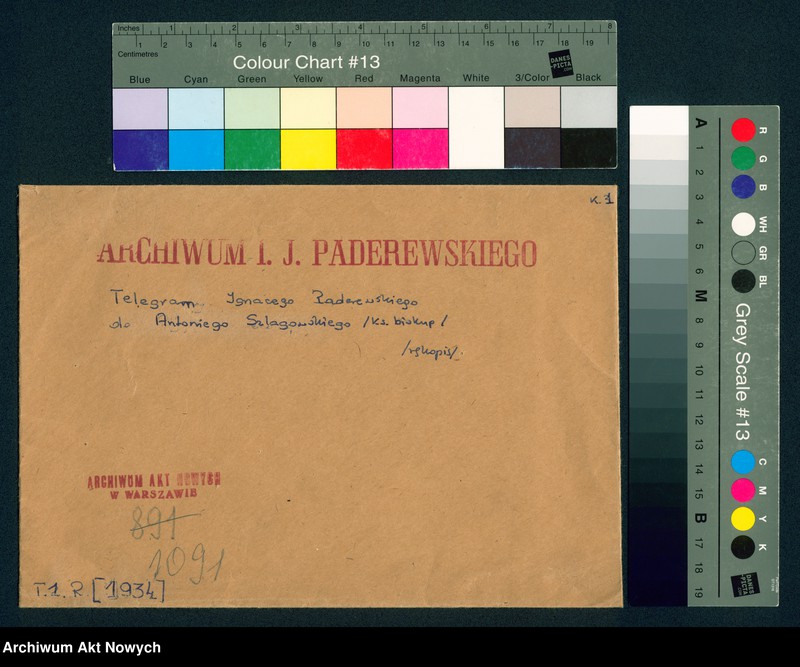 Inches 1 2 3 4 5 6 7 8
Centimetres 1 2 3 4 5 6 7 8 9 10 11 12 13 14 15 16 17 18 19
Colour Chart #13
DANES-PICTA.COM
Blue Cyan Green Yellow Red Magenta White 3/Color Black
K.1
ARCHIWUM I. J. PADEREWSKIEGO
Telegram Ignacego Paderewskiego
do Antoniego Szlagowskiego /ks. biskup/
/rękopis/.
ARCHIWUM AKT NOWYCH
W WARSZAWIE
891
1091
T.1. R [1934]
A 1 2 3 4 5 6 M 8 9 10 11 12 13 14 15 B 17 18 19
R G B WH GR BL
Grey Scale #13
C M Y K
DANES-PICTA.COM
Archiwum Akt Nowych